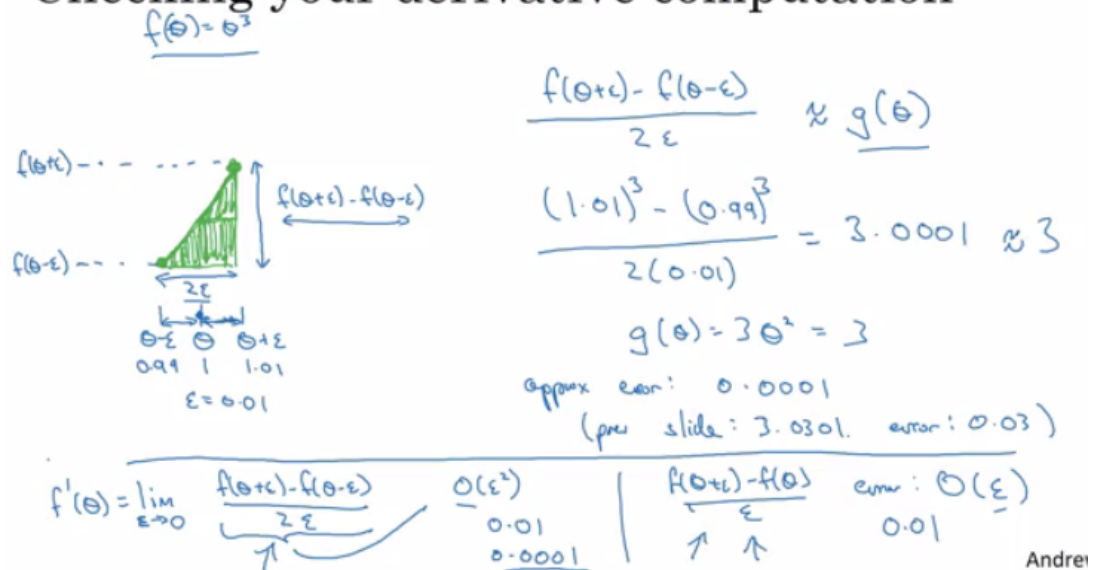 Checking your derivative computation
f(θ) = θ³
f(θ+ε)
f(θ-ε)
f(θ+ε) - f(θ-ε)
2ε
θ-ε θ θ+ε
0.99 1 1.01
ε = 0.01
f(θ+ε) - f(θ-ε) / 2ε ≈ g(θ)
(1.01)³ - (0.99)³ / 2(0.01) = 3.0001 ≈ 3
g(θ) = 3θ² = 3
approx error: 0.0001
(prev slide: 3.0301. error: 0.03)
f'(θ) = lim ε→0 f(θ+ε) - f(θ-ε) / 2ε
O(ε²)
0.01
0.0001
f(θ+ε) - f(θ) / ε error: O(ε)
0.01
Andrew